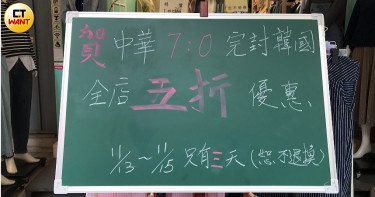 CTWANT
賀 中華 7:0 完封韓國
全店 五折 優惠、
11/13~11/15 只有三天(恕不退換)